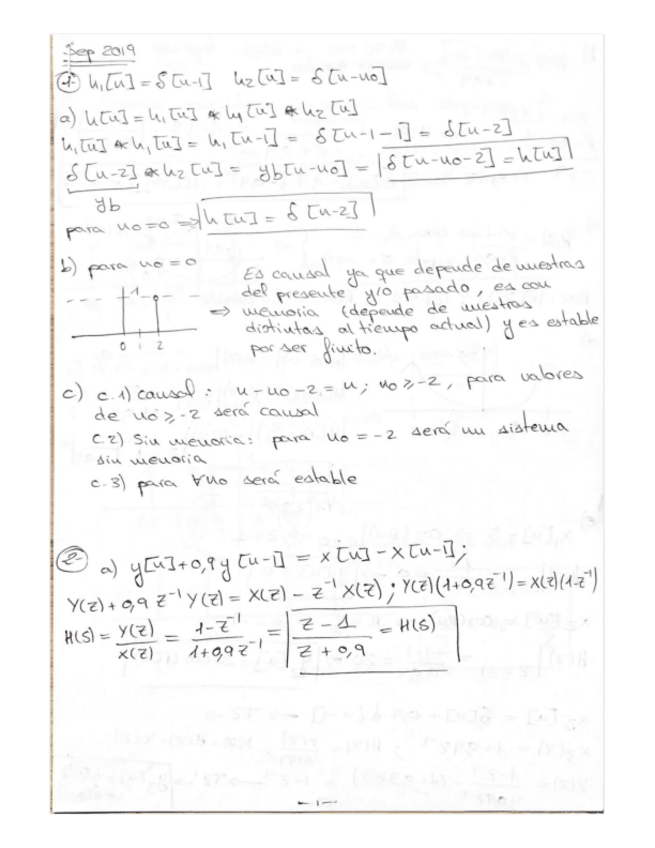 Sep 2019
1- h₁[n] = δ[n-1] h₂[n] = δ[n-n0]
a) h[n] = h₁[n] * h₁[n] * h₂[n]
h₁[n] * h₁[n] = h₁[n-1] = δ[n-1-1] = δ[n-2]
δ[n-2] * h₂[n] = yb[n-n0] = δ[n-n0-2] = h[n]
yb
para n0=0 => h[n] = δ[n-2]
b) para n0=0
Es causal ya que depende de muestras
del presente y/o pasado, es con
1
=> memoria (depende de muestras
distintas al tiempo actual) y es estable
0 1 2
por ser finito.
c) c.1) causal: n-n0-2 = n; n0 ≥ -2, para valores
de n0 ≥ -2 será causal
c.2) Sin memoria: para n0 = -2 será un sistema
sin memoria
c.3) para ∀n0 será estable
2- a) y[n]+0,9y[n-1] = x[n]-x[n-1];
Y(z)+0,9 z⁻¹ Y(z) = X(z) - z⁻¹ X(z); Y(z)(1+0,9z⁻¹) = X(z)(1-z⁻¹)
H(s) = Y(z)/X(z) = 1-z⁻¹/1+0,9z⁻¹ = z-1/z+0,9 = H(s)
-1-